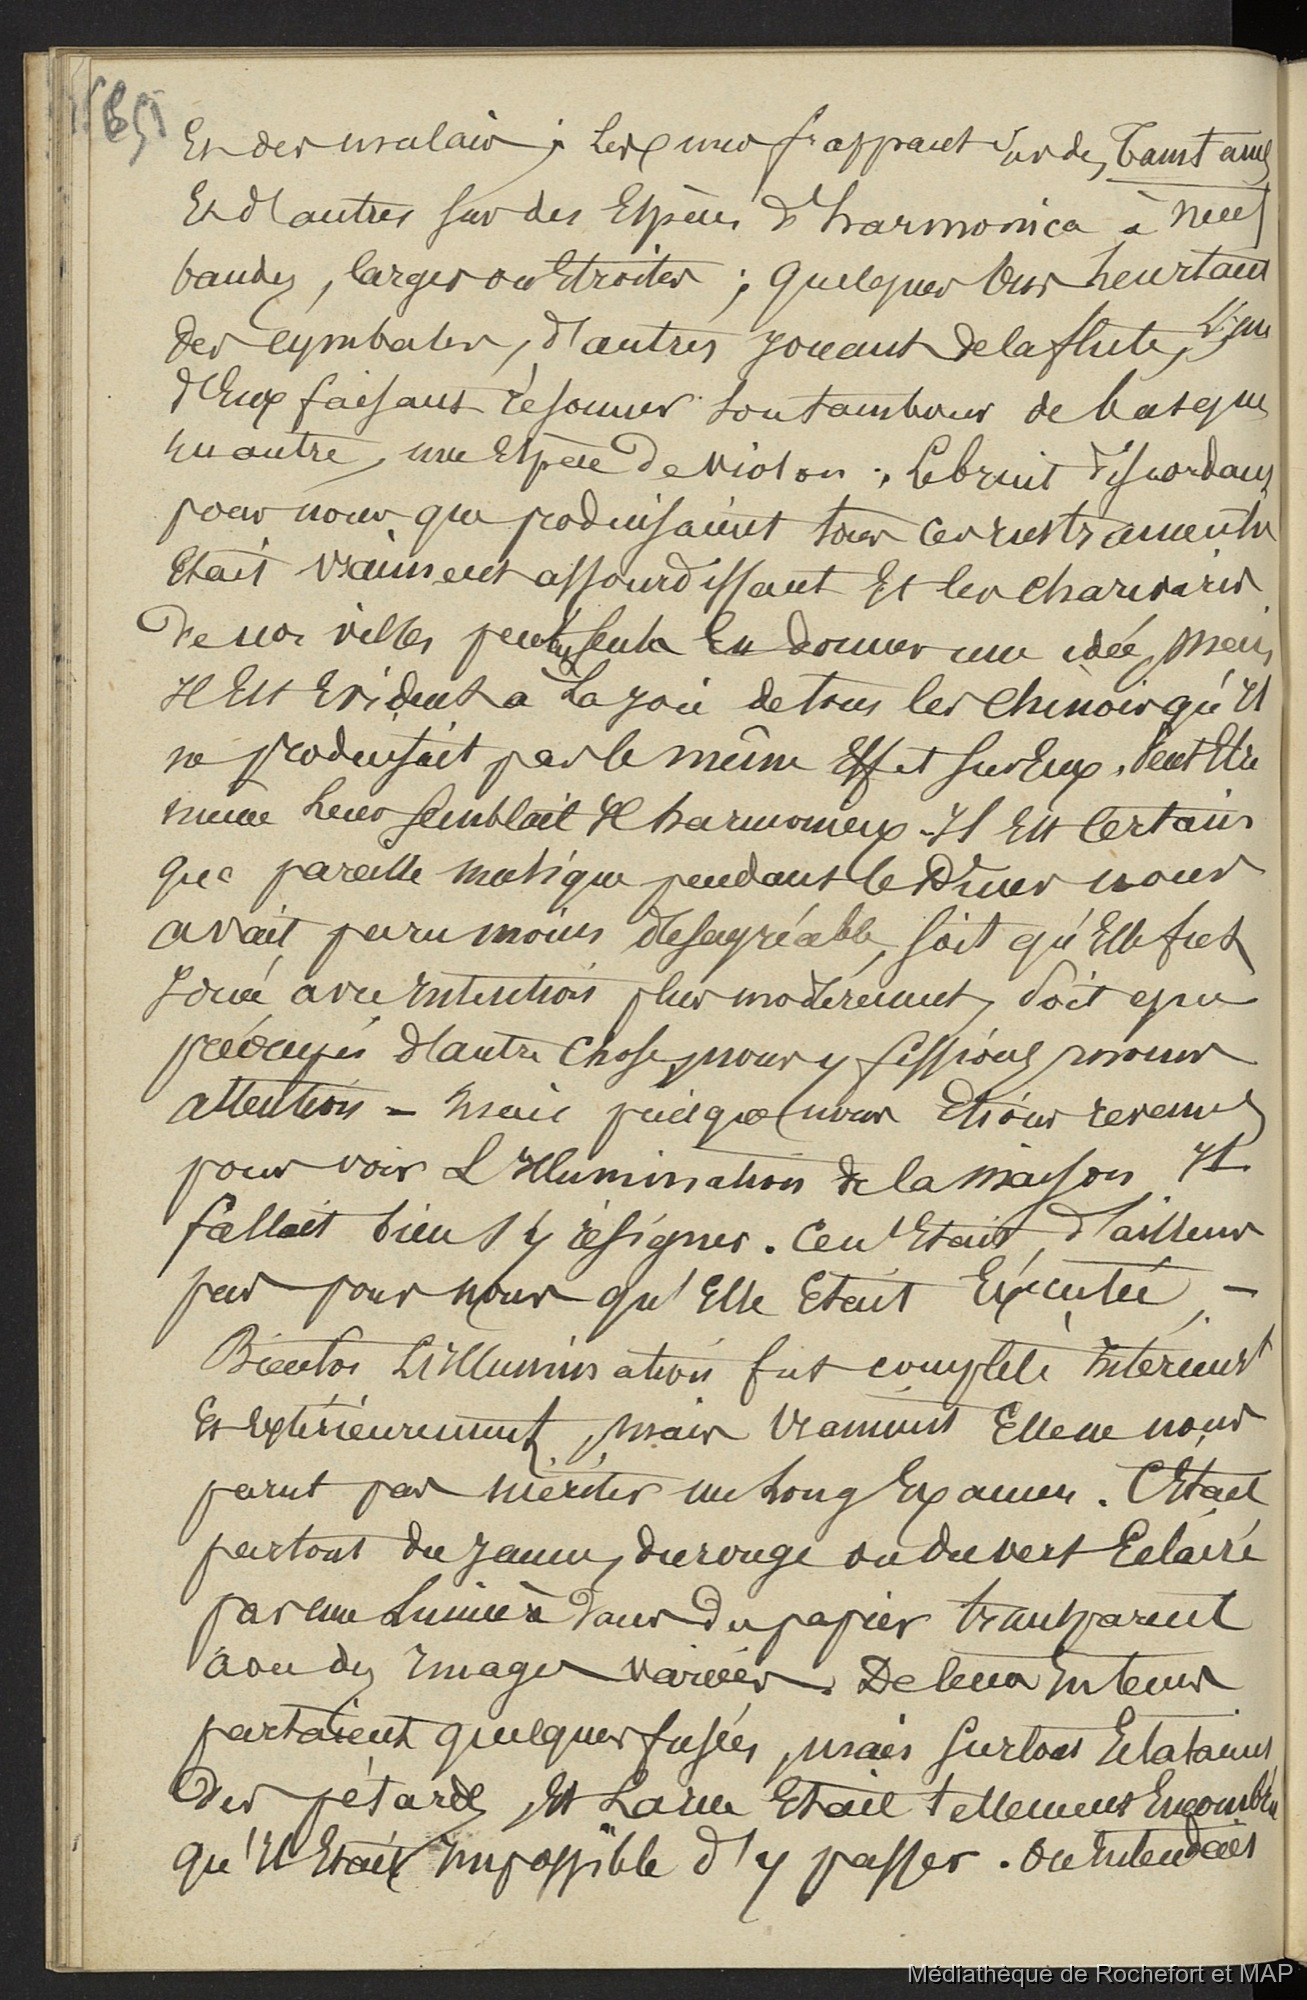 Et des malais ; les uns frappant sur des Tamtams
Et d'autres sur des Espèces d'harmonica à neuf
bandes, larges ou Etroites ; quelques uns heurtant
des cymbales, d'autres jouant de la flute, l'un
d'Eux faisant résonner son tambour de basque
un autre, une Espèce de violon. Le bruit discordant
pour nous que produisaient tous ces instruments
Etait vraiment assourdissant Et les charivaris
de nos villes peuvent seuls En donner une idée, mais
Il Est Evident a La joie de tous les Chinois qu'Il
ne produisait pas le même Effet sur Eux. Peut Etre
même Leur semblait Il harmonieux. Il Est Certain
que pareille musique pendant le Diner nous
avait paru moins désagréable, soit qu'Elle fut
Jouée avec Intention plus modérément, soit que
préoccupés d'autre Chose, nous y fissions moins
attention - mais puisque nous Etions revenus
pour voir L'Illumination de la maison Il
fallait bien s'y résigner. Ce n'Etait d'ailleurs
pas pour nous qu'Elle Etait Exécutée. -
Bientot L'Illumination fut complète Intérieurt
Et Extérieurement, mais vraiment Elle ne nous
parut pas mériter un Long Examen. C'Etait
partout du jaune, du rouge ou du vert Eclairé
par une Lumière dans du papier transparent
à ou des Images variées. De tems En tems
partaient quelques fusées, mais surtout Eclataient
Des pétards, Et La rue Etait tellement Encombrée
qu'Il Etait Impossible d'y passer. On Entendait
Médiathèque de Rochefort et MAP